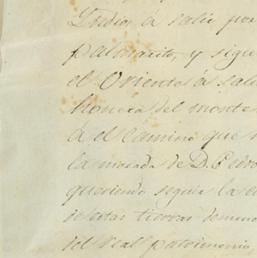 Indio, á salir por
palmarito, y sigue
el Oriente á sali
del monte
á el camino que
la morada de D. Pedro
queriendo seguir la
de estas tierras
del Real patrimonio,